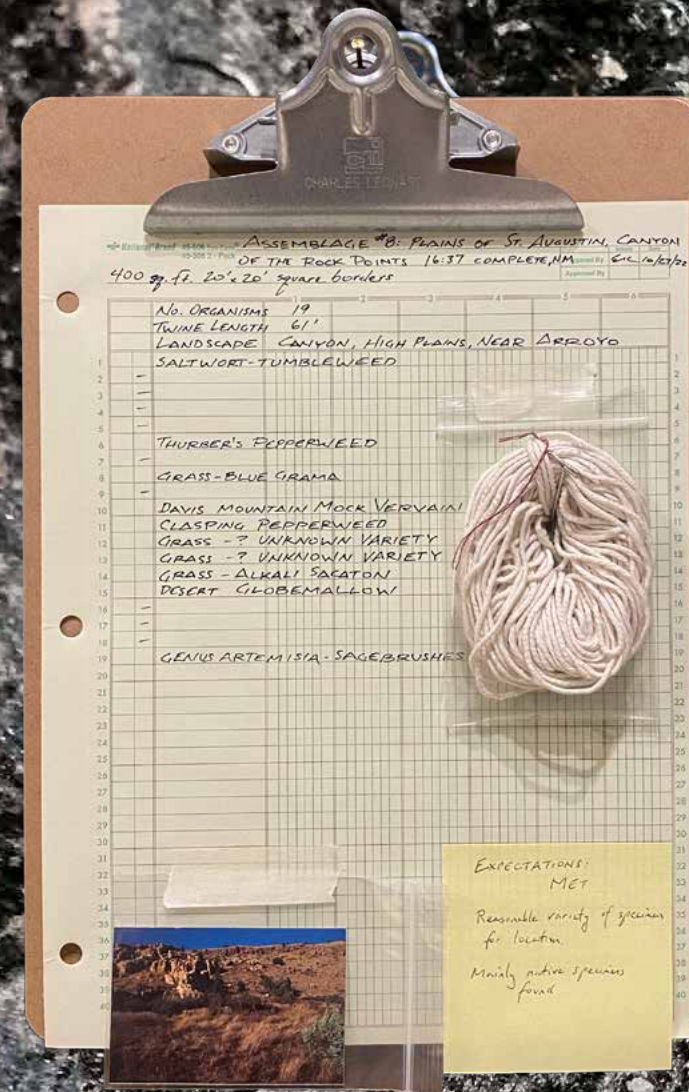 CHARLES LEONARD
National Brand
ASSEMBLAGE #8: PLAINS OF ST. AUGUSTIN, CANYON
OF THE ROCK POINTS 16:37 COMPLETE, NM
Approved By
400 sq. ft. 20'x20' square borders
1 2 3 4 5 6
No. ORGANISMS 19
TWINE LENGTH 61'
LANDSCAPE CANYON, HIGH PLAINS, NEAR ARROYO
1 SALTWORT-TUMBLEWEED 1
2 - 2
3 - 3
4 - 4
5 - 5
6 THURBER'S PEPPERWEED 6
7 - 7
8 GRASS-BLUE GRAMA 8
9 - 9
10 DAVIS MOUNTAIN MOCK VERVAIN 10
11 CLASPING PEPPERWEED 11
12 GRASS -? UNKNOWN VARIETY 12
13 GRASS -? UNKNOWN VARIETY 13
14 GRASS - ALKALI SACATON 14
15 DESERT GLOBEMALLOW 15
16 - 16
17 - 17
18 - 18
19 GENUS ARTEMISIA - SAGEBRUSHES 19
20 20
21 21
22 22
23 23
24 24
25 25
26 26
27 27
28 28
29 29
30 30
31 31
32 32
33 33
34 34
35 35
36 36
37 37
38 38
39 39
40 40
EXPECTATIONS:
MET
Reasonable variety of specimen
for location
Mainly native specimens
found